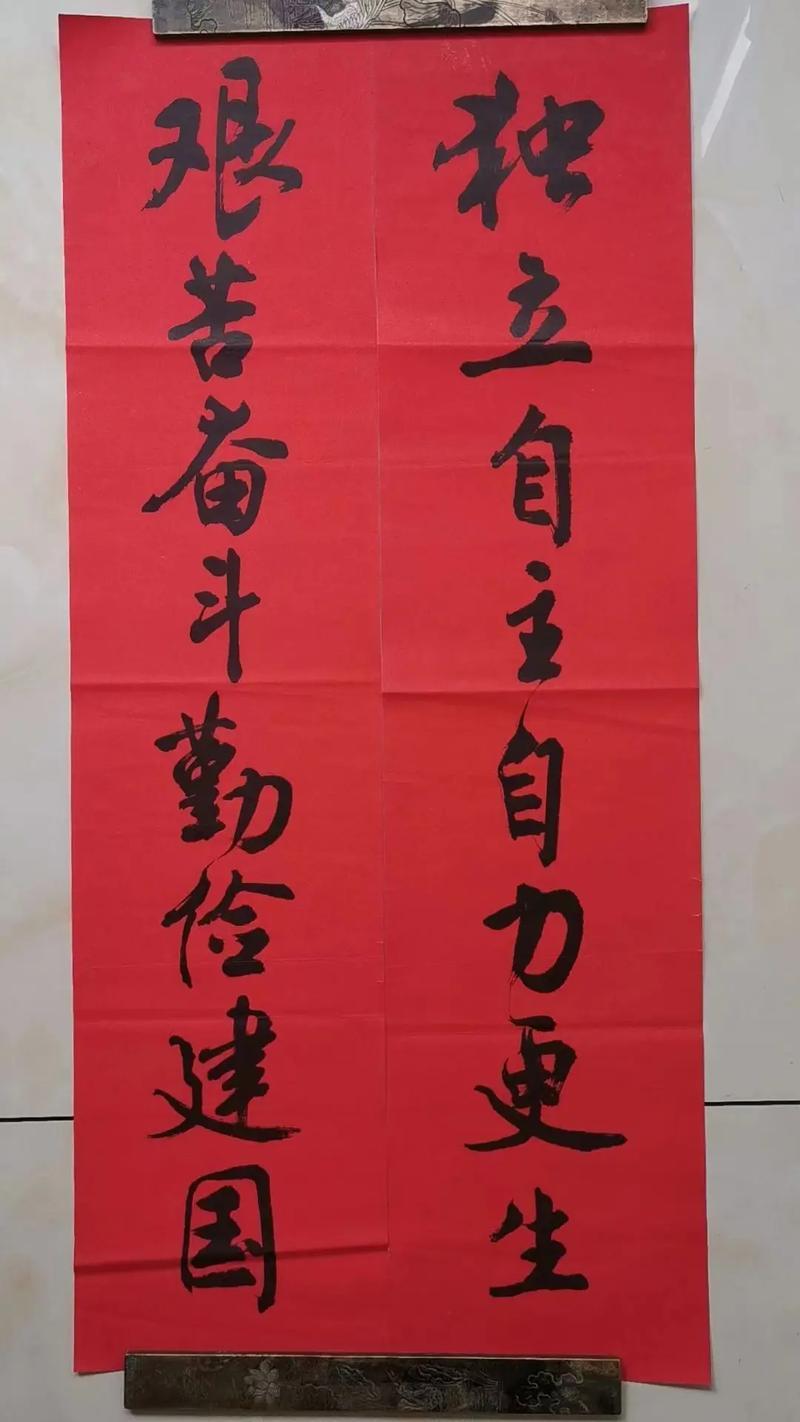 独立自主自力更生
艰苦奋斗勤俭建国